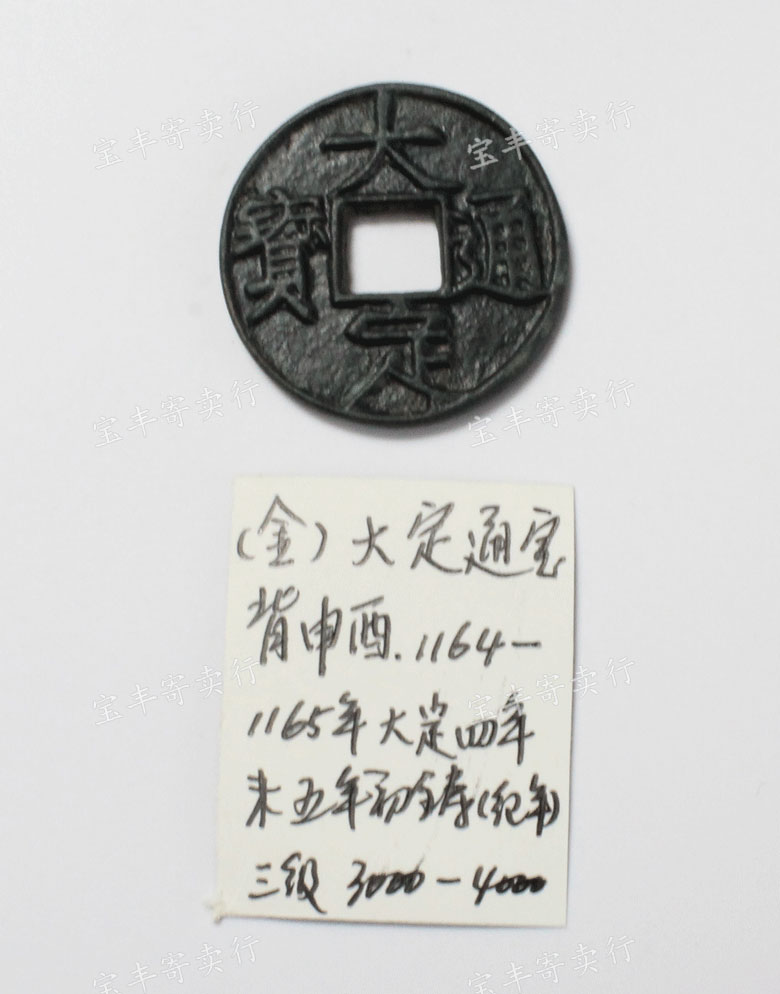 宝丰寄卖行 宝丰寄卖行
大
寶 通
定
宝丰寄卖行 宝丰寄卖行
(金)大定通宝
背申酉.1164—
宝丰寄卖行 宝丰寄卖行
1165年大定四年
末五年初铸(纪年)
三级 3000—4000
宝丰寄卖行 宝丰寄卖行